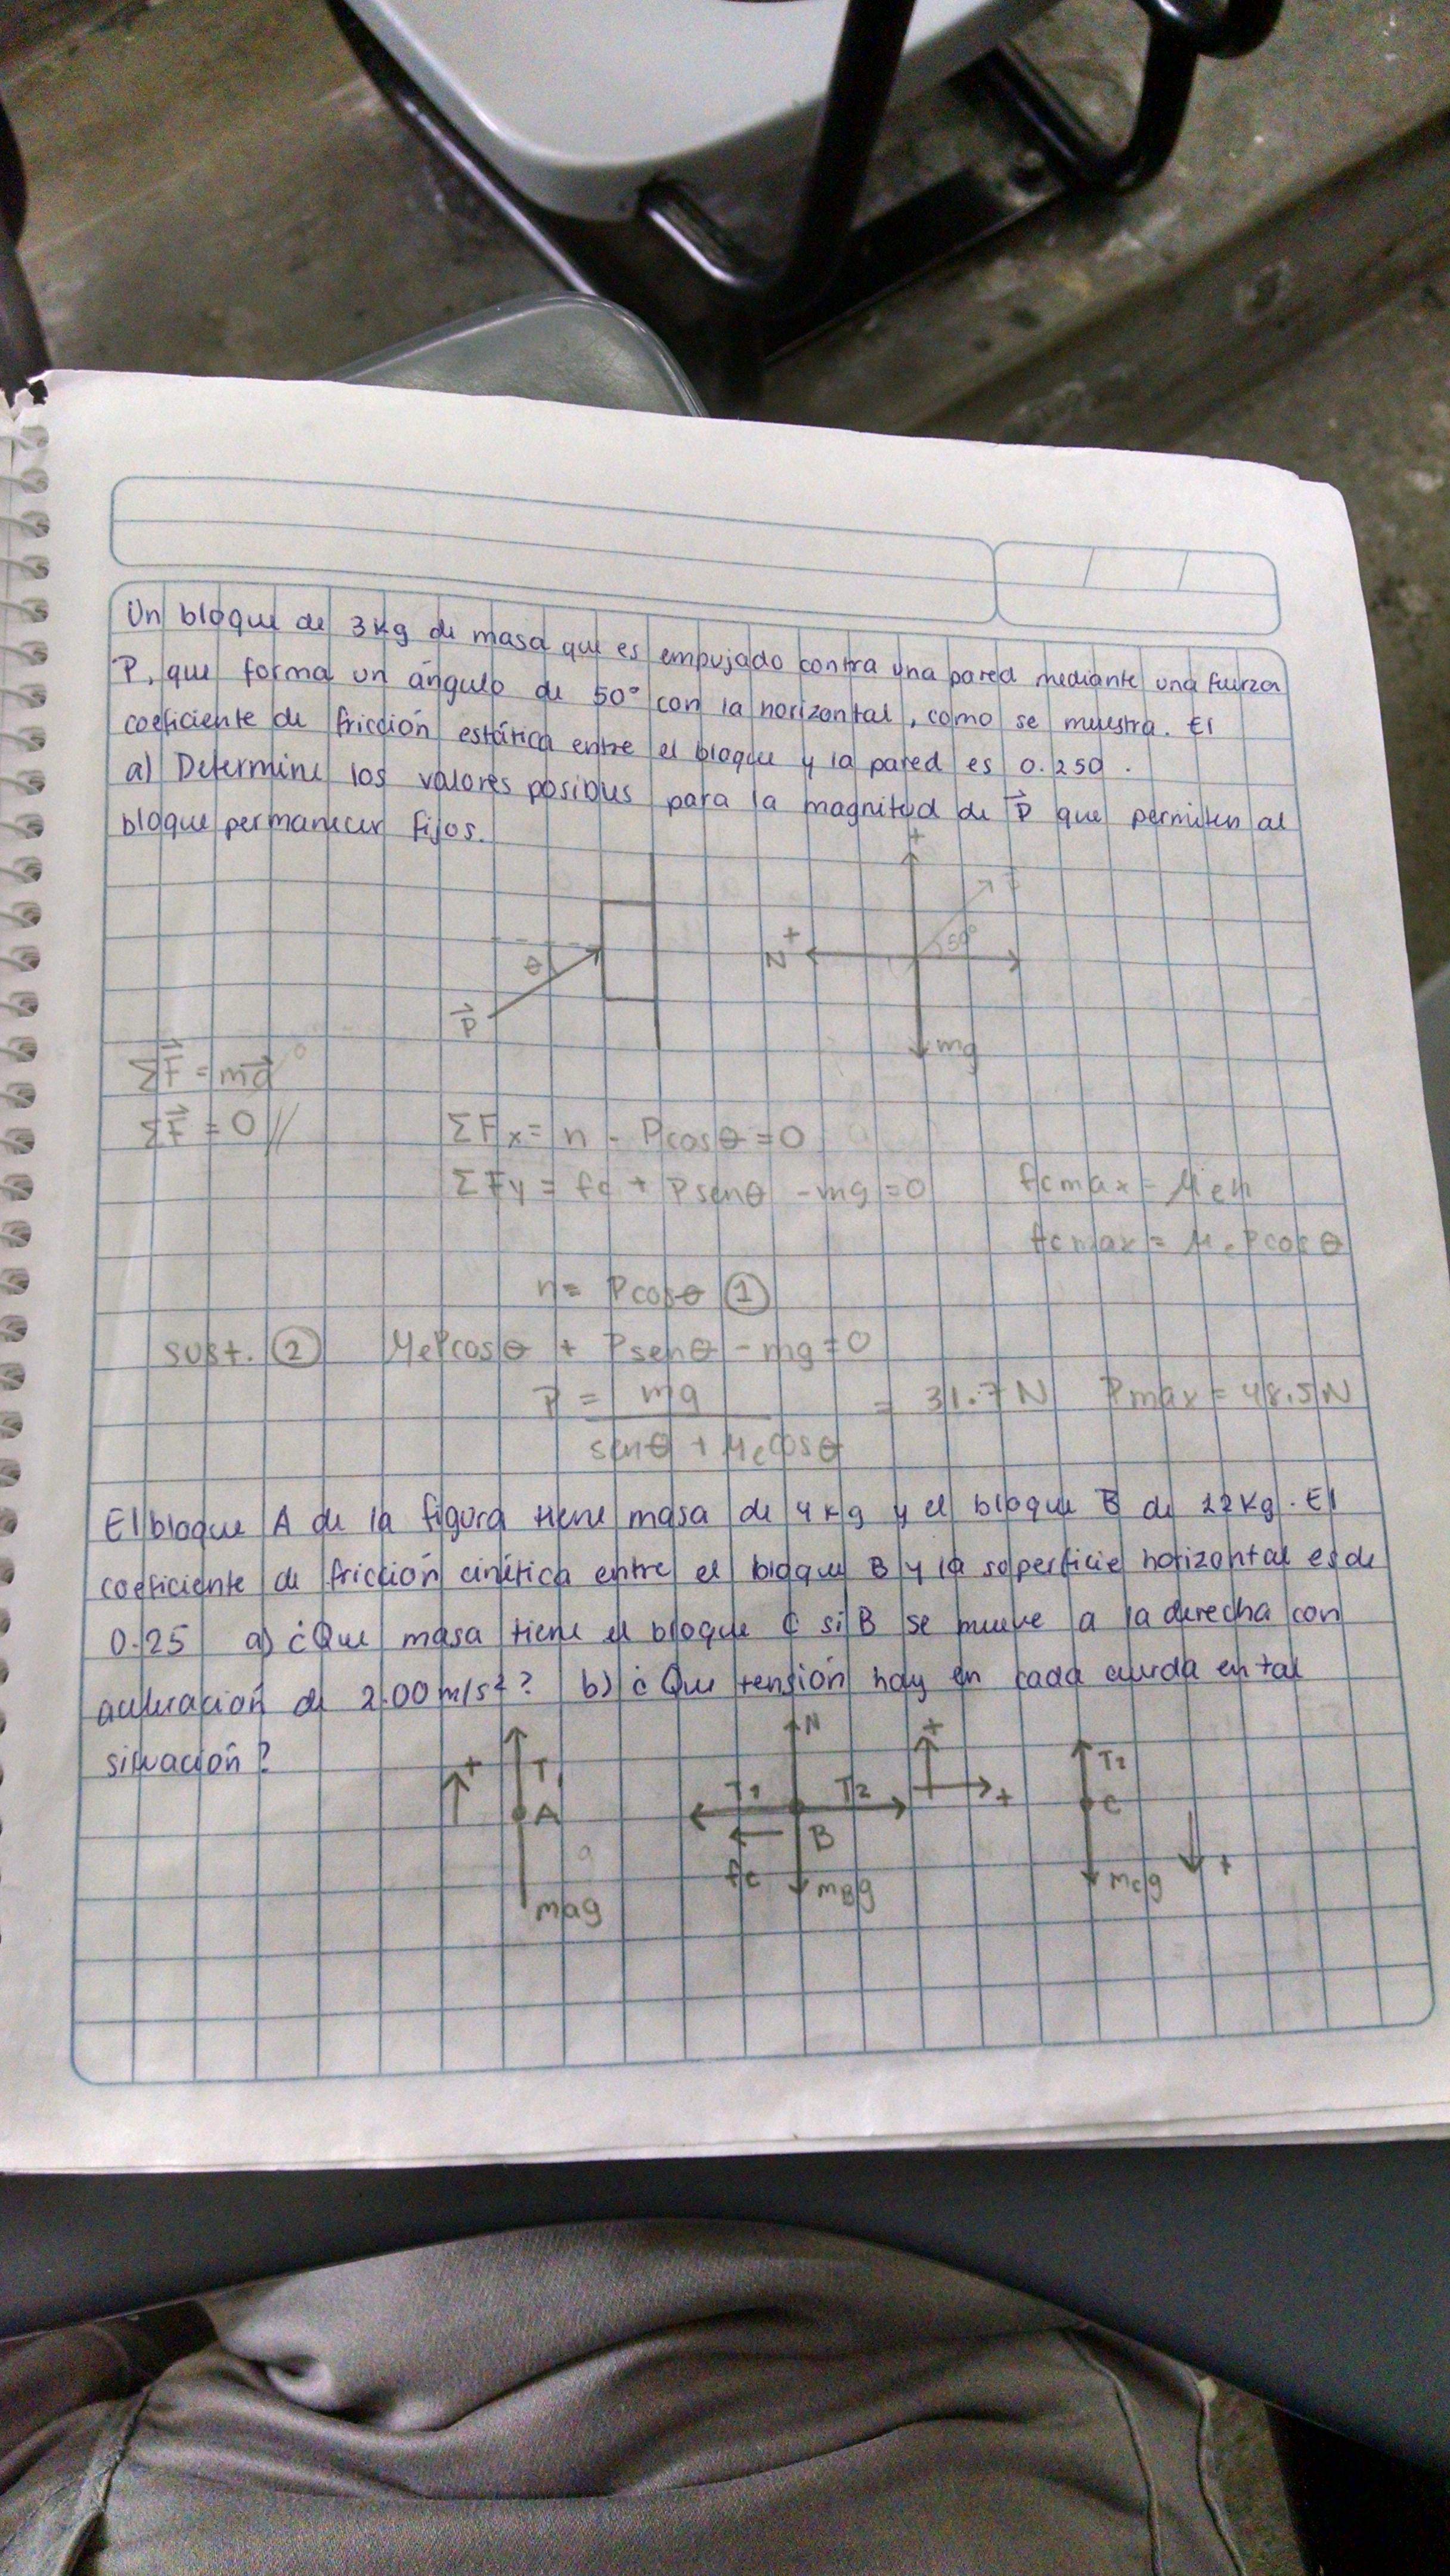 Un bloque de 3kg de masa que es empujado contra una pared mediante una fuerza
P, que forma un ángulo de 50° con la horizontal, como se muestra. El
coeficiente de fricción estática entre el bloque y la pared es 0.250.
a) Determine los valores posibles para la magnitud de P⃗ que permiten al
bloque permanecer fijos.
+
50°
+
N
θ
P⃗
mg
ΣF⃗ = ma⃗ 0
ΣF⃗ = 0 //
ΣFx = n - Pcosθ = 0
ΣFy = fe + Psenθ - mg = 0
femax = μen
femax = μePcosθ
n = Pcosθ ①
sust. ② μePcosθ + Psenθ - mg = 0
P = mg / senθ + μecosθ = 31.7 N Pmax = 48.5 N
El bloque A de la figura tiene masa de 4 kg y el bloque B de 12 kg. El
coeficiente de fricción cinética entre el bloque B y la superficie horizontal es de
0.25 a) ¿Que masa tiene el bloque C si B se mueve a la derecha con
aceleración de 2.00 m/s²? b) ¿Que tensión hay en cada cuerda en tal
situación?
+ T1 A mag
N T1 T2 B fc mBg + +
T2 C mcg +